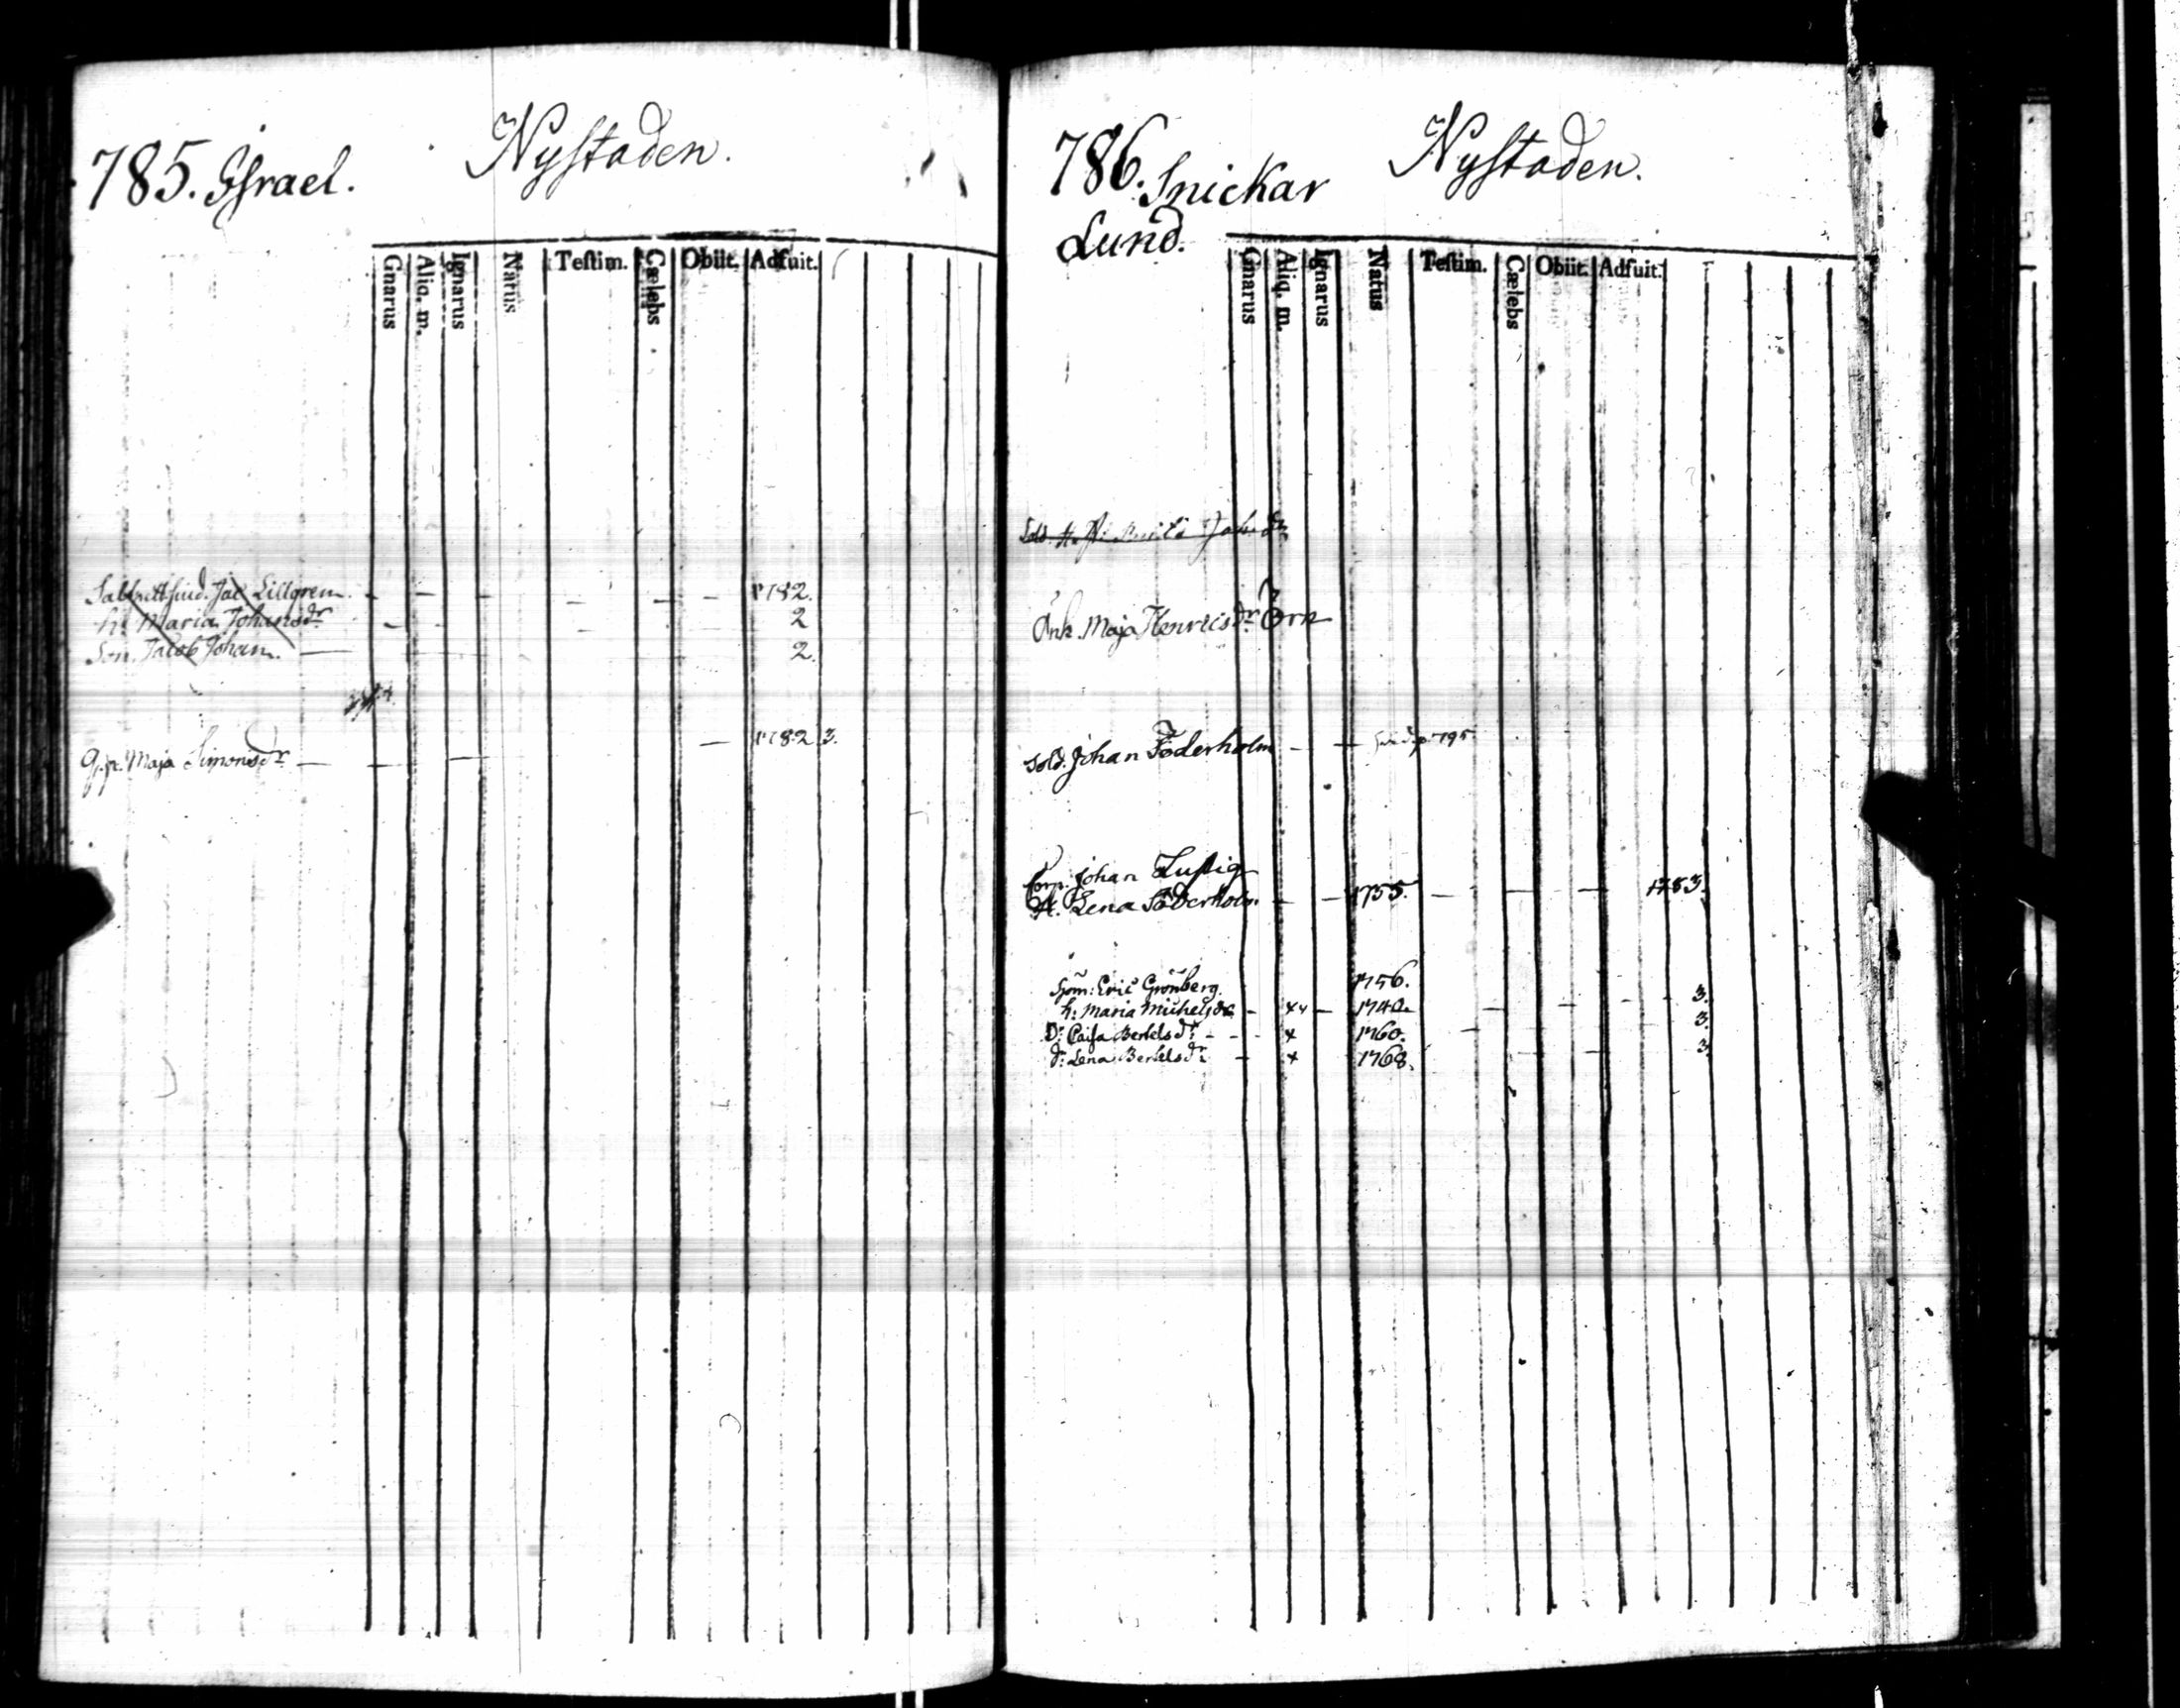 785. Israel. Nystaden.
Gnarus Aliq. m. Ignarus Natus Testim. Cælebs Obiit. Adfuit.
Jac Lillgren. - - - - - - 1782.
h: Maria Johansdr - - - 2
Son. Jacob Johan. - 2.
Maja Simonsdr - - - - 1782 3.
786. Snickar Nystaden.
Lund.
Gnarus Aliq. m. Ignarus Natus Testim. Cælebs Obiit. Adfuit.
Sold.
Änk. Maja Henricsdr Örn
Sold. Johan Söderholm - - p. 795
Corp. Johan Lustig
H. Lena Söderholm - - 1755. - - - 1783.
Sjöm: Eric Grönberg. 1756.
h: Maria Michelsdr - ++ - - - - - 3.
D: Caisa Bertelsdr - - + 1760. - 3.
d: Lena Bertelsdr - + 1768. - - 3.